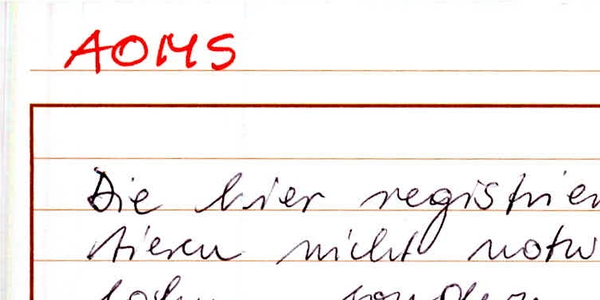 AOMS
Die hier registrier
tieren nicht notw
sondern